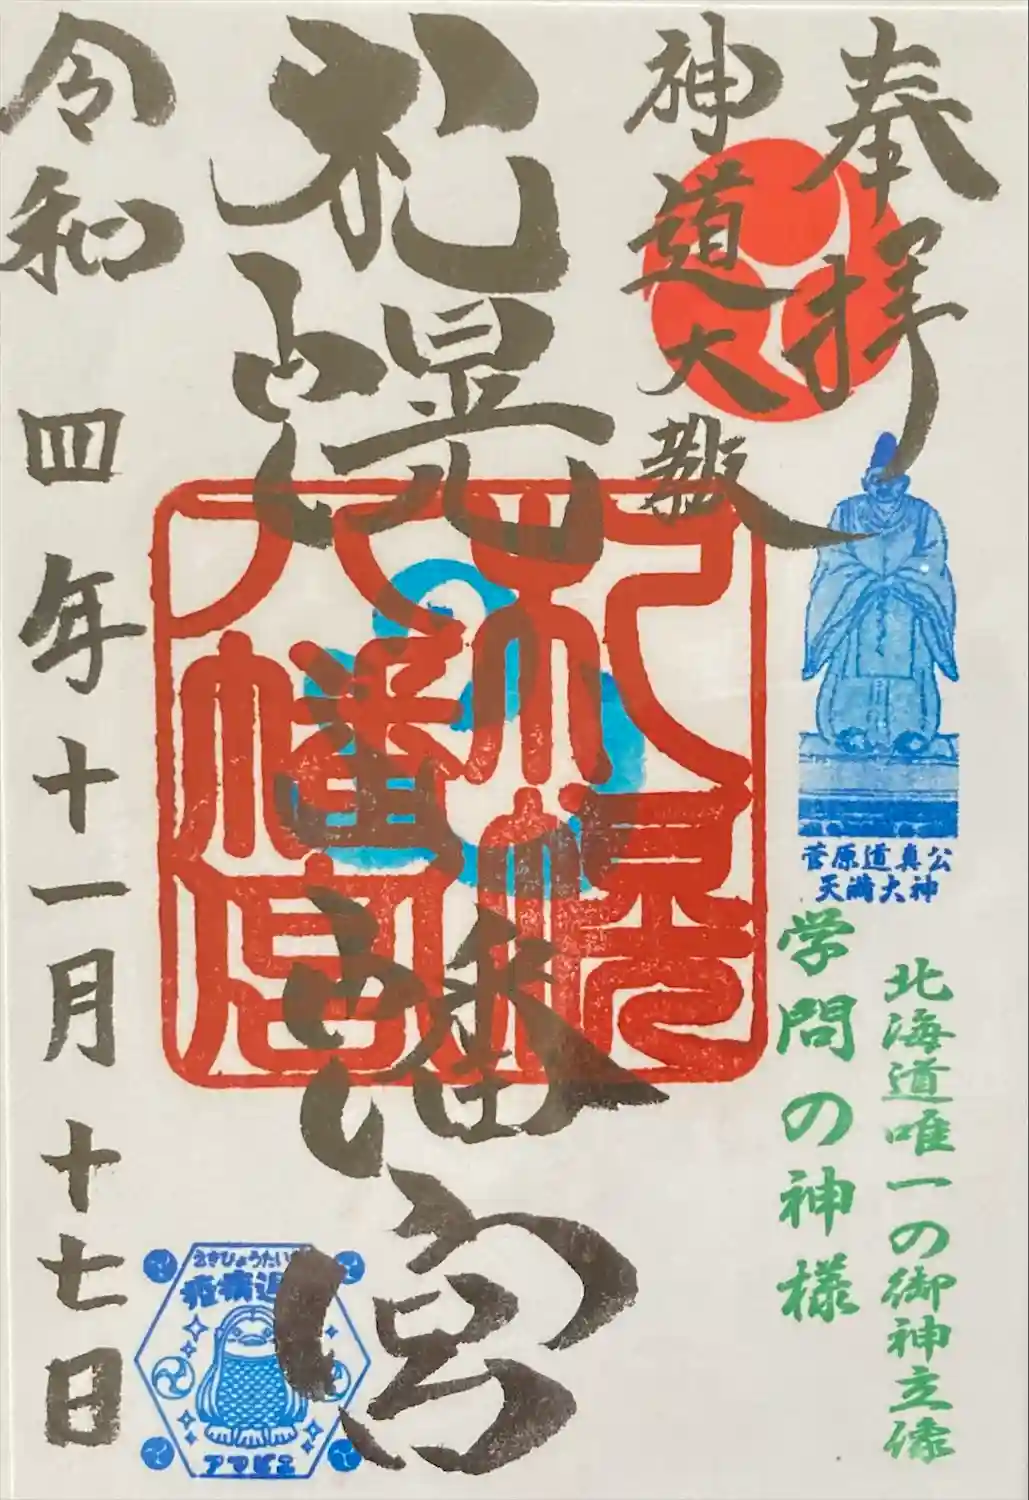 奉拝
神道大教
札幌八幡宮
令和四年十一月十七日
札幌
八幡宮
菅原道真公
天満大神
北海道唯一の御神立像
学問の神様
えきびょうたい
疫病退
アマビエ